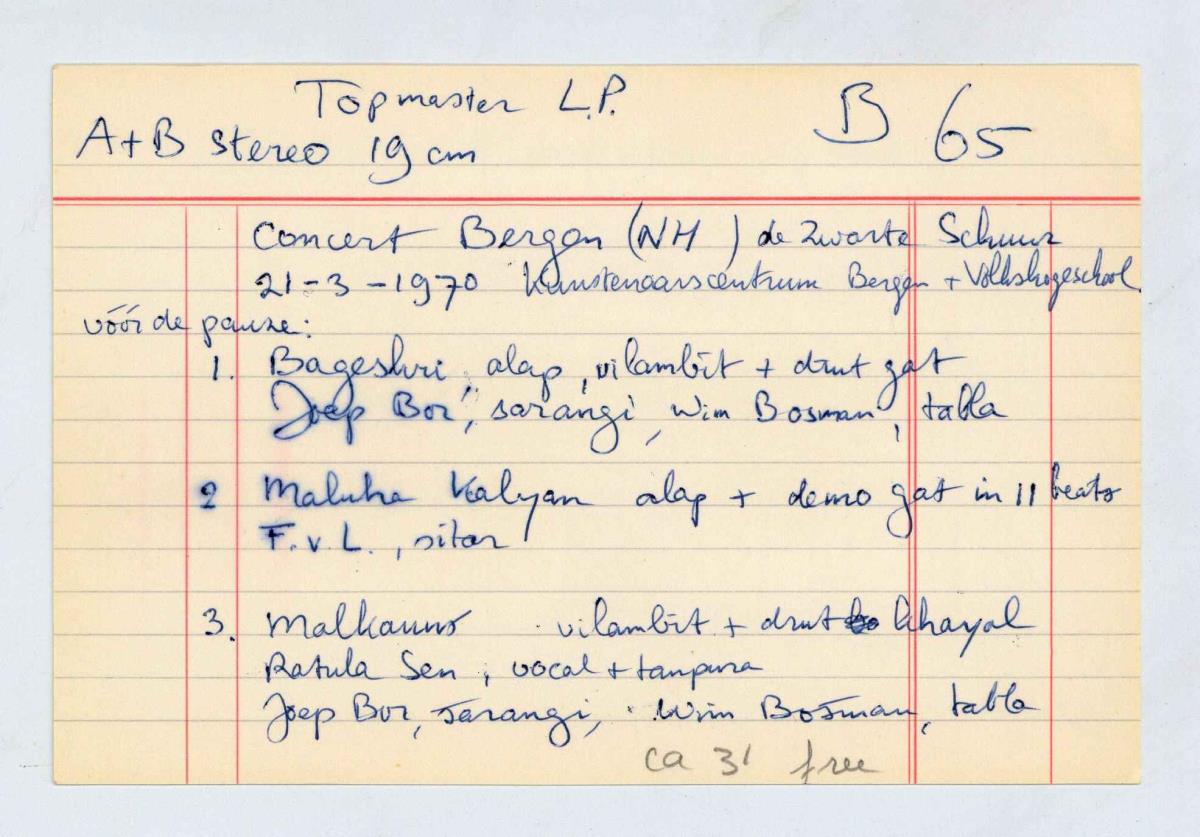 Topmaster L.P. B 65
A+B stereo 19 cm
Concert Bergen (NH) de Zwarte Schuur
21-3-1970 Kunstenaarscentrum Bergen + Volkshogeschool
vóór de pauze:
1. Bageshri, alap, vilambit + drut gat
Joep Bor, sarangi, Wim Bosman, tabla
2 Maluha Kalyan alap + demo gat in 11 beats
F.v.L., sitar
3. Malkauns vilambit + drut khayal
Ratula Sen, vocal + tanpura
Joep Bor, sarangi, Wim Bosman, tabla
ca 31 free